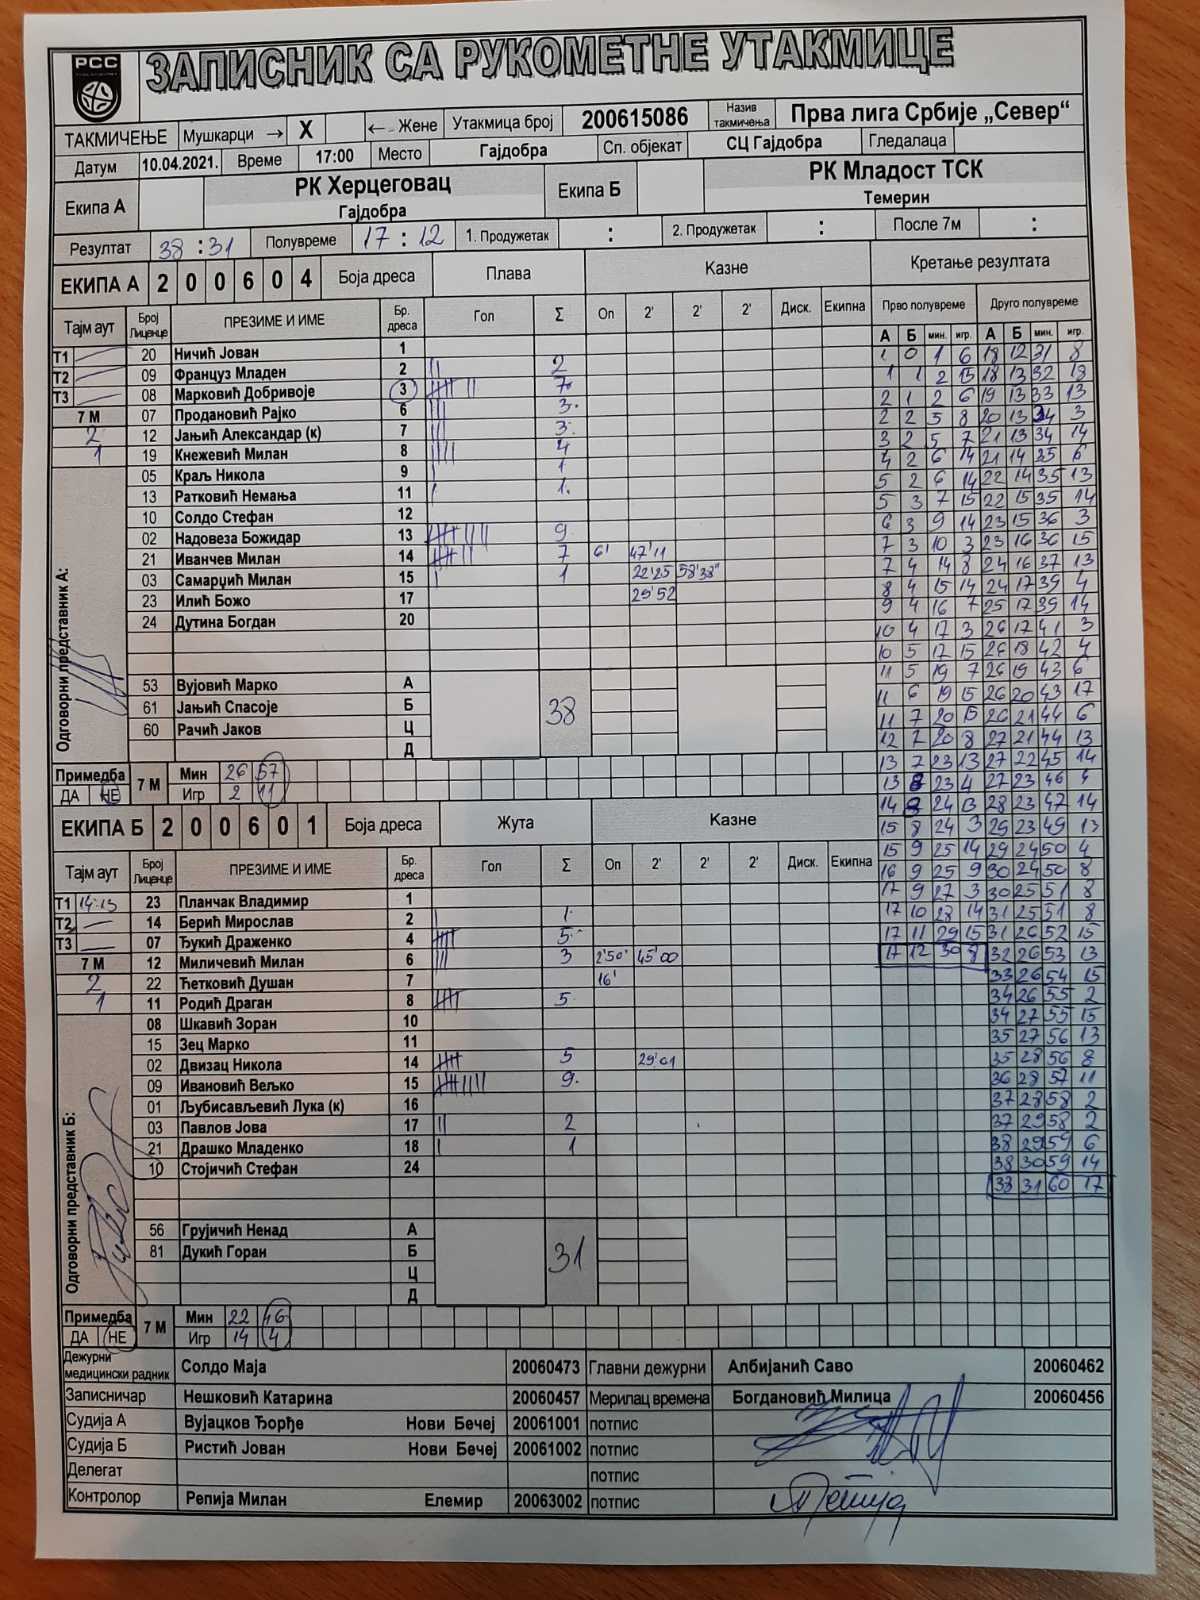 РСС
ЗАПИСНИК СА РУКОМЕТНЕ УТАКМИЦЕ
ТАКМИЧЕЊЕ Мушкарци → X ← Жене Утакмица број 200615086 Назив такмичења Прва лига Србије „Север“
Датум 10.04.2021. Време 17:00 Место Гајдобра Сп. објекат СЦ Гајдобра Гледалаца
Екипа А РК Херцеговац Екипа Б РК Младост ТСК
Гајдобра Темерин
Резултат 38 : 31 Полувреме 17 : 12 1. Продужетак : 2. Продужетак : После 7м :
ЕКИПА А 2 0 0 6 0 4 Боја дреса Плава Казне Кретање резултата
Тајм аут Број Лиценце ПРЕЗИМЕ И ИМЕ Бр. дреса Гол Σ Оп 2' 2' 2' Диск. Екипна Прво полувреме Друго полувреме
А Б мин. игр. А Б мин. игр.
Т1 20 Ничић Јован 1 1 0 1 6 18 12 31 8
Т2 09 Француз Младен 2 2 1 1 2 15 18 13 32 18
Т3 08 Марковић Добривоје 3 7 2 1 2 6 19 13 33 13
7 М 07 Продановић Рајко 6 3 2 2 5 8 20 13 34 3
2 12 Јањић Александар (к) 7 3 3 2 5 7 21 13 34 14
1 19 Кнежевић Милан 8 4 4 2 6 14 21 14 35 6
05 Краљ Никола 9 1 5 2 6 14 22 14 35 13
13 Ратковић Немања 11 1 5 3 7 15 22 15 35 14
10 Солдо Стефан 12 6 3 9 14 23 15 36 3
02 Надовеза Божидар 13 9 7 3 10 3 23 16 36 15
21 Иванчев Милан 14 7 6' 47'11 7 4 14 8 24 16 37 13
03 Самарџић Милан 15 1 22'25 58'38" 8 4 15 14 24 17 39 4
23 Илић Божо 17 29'52 9 4 16 7 25 17 39 14
24 Дутина Богдан 20 10 4 17 3 26 17 41 3
10 5 17 15 26 18 42 4
11 5 19 7 26 19 43 6
53 Вујовић Марко А 11 6 19 15 26 20 43 17
61 Јањић Спасоје Б 38 11 7 20 15 26 21 44 6
60 Рачић Јаков Ц 12 7 20 8 27 21 44 13
Д 13 7 23 13 27 22 45 14
Одговорни представник А:
Примедба 7 М Мин 26 57 13 8 23 4 27 23 46 4
ДА НЕ Игр 2 11 14 8 24 13 28 23 47 14
ЕКИПА Б 2 0 0 6 0 1 Боја дреса Жута Казне 15 8 24 3 29 23 49 13
Тајм аут Број Лиценце ПРЕЗИМЕ И ИМЕ Бр. дреса Гол Σ Оп 2' 2' 2' Диск. Екипна 15 9 25 14 29 24 50 4
16 9 25 9 30 24 50 8
Т1 14:15 23 Планчак Владимир 1 17 9 27 3 30 25 51 8
Т2 14 Берић Мирослав 2 1 17 10 28 14 31 25 51 8
Т3 07 Ђукић Драженко 4 5 17 11 29 15 31 26 52 15
7 М 12 Миличевић Милан 6 3 2'50" 45'00 17 12 30 8 32 26 53 13
2 22 Ћетковић Душан 7 16' 33 26 54 15
1 11 Родић Драган 8 5 34 26 55 2
08 Шкавић Зоран 10 34 27 55 15
15 Зец Марко 11 35 27 56 13
02 Двизац Никола 14 5 29'01 35 28 56 8
09 Ивановић Вељко 15 9 36 28 57 11
01 Љубисављевић Лука (к) 16 37 28 58 2
03 Павлов Јова 17 2 37 29 58 2
21 Драшко Младенко 18 1 38 29 59 6
10 Стојичић Стефан 24 38 30 59 14
38 31 60 17
Одговорни представник Б:
56 Грујичић Ненад А
81 Дукић Горан Б 31
Ц
Д
Примедба 7 М Мин 22 46
ДА НЕ Игр 14 4
Дежурни медицински радник Солдо Маја 20060473 Главни дежурни Албијанић Саво 20060462
Записничар Нешковић Катарина 20060457 Мерилац времена Богдановић Милица 20060456
Судија А Вујацков Ђорђе Нови Бечеј 20061001 потпис
Судија Б Ристић Јован Нови Бечеј 20061002 потпис
Делегат потпис
Контролор Репија Милан Елемир 20063002 потпис